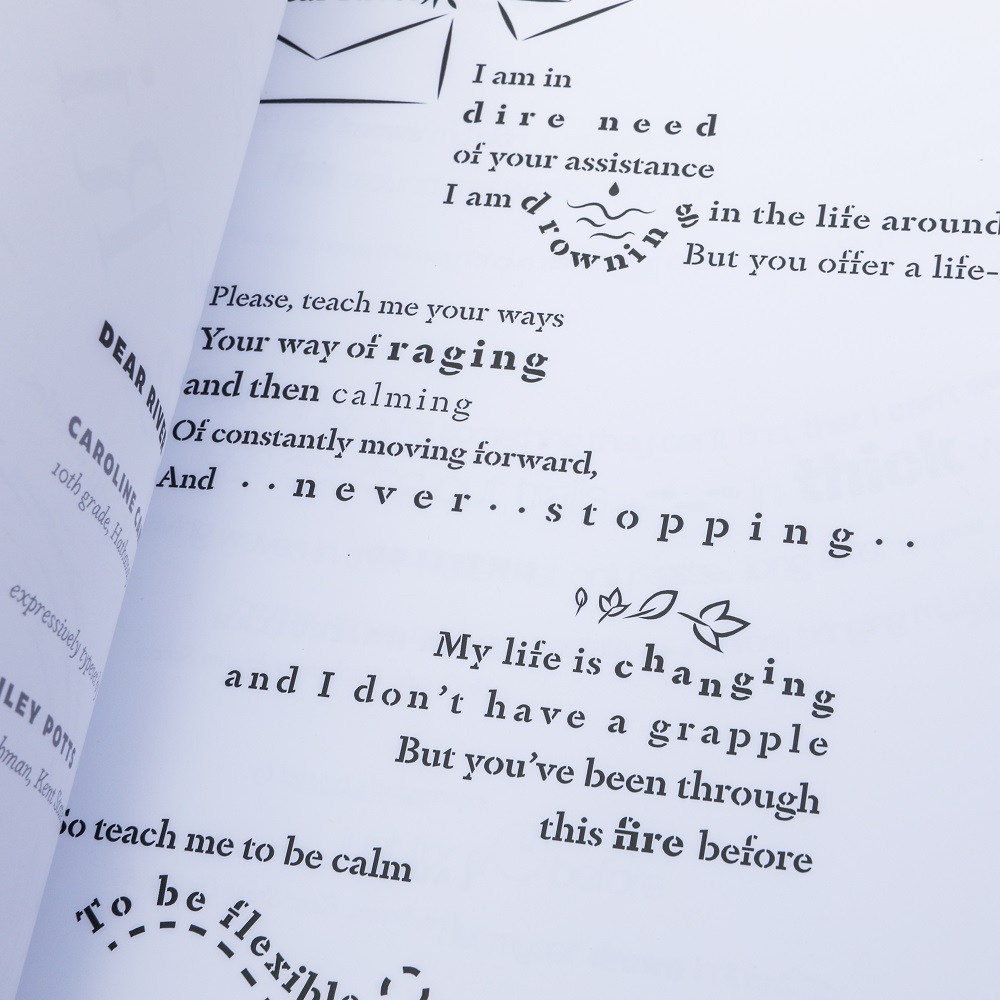 DEAR RIVE
CAROLINE
10th grade,
expressively
POTTS
Kent
I am in
dire need
of your assistance
I am drowning in the life around
But you offer a life-
Please, teach me your ways
Your way of raging
and then calming
Of constantly moving forward,
And ..never..stopping..
My life is changing
and I don't have a grapple
But you've been through
this fire before
So teach me to be calm
To be flexible